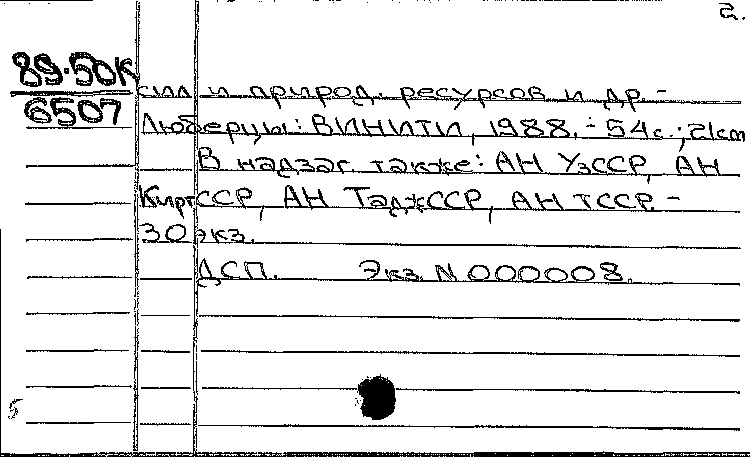 2.
89.50К
6507
сил и природ. ресурсов и др -
Люберцы: ВИНИТИ, 1988. - 54с.; 21см
В надзаг. также: АН УзССР, АН
КиргССР, АН ТаджССР, АН ТССР. -
30 экз.
ДСП. Экз N 000008.
5